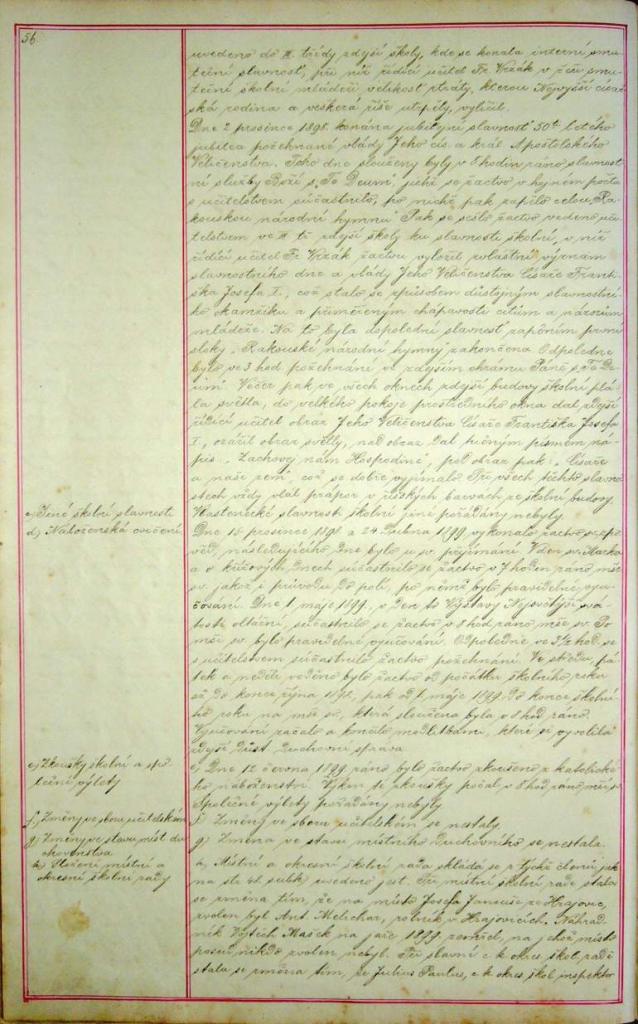 56.
uvedeno do III. třídy zdejší školy, kde se konala interní smu-
teční slavnost, při níž řídící učitel Fr. Vrzák v řeči smu-
teční školní mládeži velikost ztráty, kterou Nejvyšší císař-
ská rodina a veškerá říše utrpěly, vylíčil.
Dne 2. prosince 1898. konána jubilejní slavnost 50ti letého
jubilea požehnané vlády Jeho cís. a král. Apoštolského
Veličenstva. Toho dne slouženy byly v 8 hodin ráno slavnost-
ní služby Boží s „Te Deum“, jichž se žactvo v hojném počtu
s učitelstvem súčastnilo, po nichž pak zapělo celou „Ra-
kouskou národní hymnu“. Pak se sešlo žactvo vedeno uči-
telstvem ve III. tř. zdejší školy ku slavnosti školní, v níž
řídící učitel Fr. Vrzák žactvu vyložil zvláštní význam
slavnostního dne a vlády Jeho Veličenstva Císaře Franti-
ška Josefa I., což stalo se způsobem důstojným slavnostní-
ho okamžiku a přiměřeným chápavosti citům a názorům
mládeže. Na to byla dopolední slavnost zapěním první
sloky „Rakouské národní hymny“ zakončena. Odpoledne
bylo ve 3 hod. požehnání ve zdejším chrámu Páně s „Te De-
um“. Večer pak ve všech oknech zdejší budovy školní plá-
la světla, do velkého pokoje prostředního okna dal zdejší
řídící učitel obraz Jeho Veličenstva Císaře Františka Josefa
I., ozářil obraz světly, nad obraz dal ručným písmem ná-
pis: „Zachovej nám Hospodine“, pod obraz pak „Císaře
a naši zem“, což se dobře vyjímalo. Při všech těchto slavno-
stech vždy vlál prapor v říšských barvách ze školní budovy.
c) Jiné školní slavnosti
Vlastenecké slavnosti školní jiné pořádány nebyly.
d) Náboženská cvičení
Dne 15. prosince 1898 a 24. dubna 1899 vykonalo žactvo sv. zpo-
věď, následujícího dne bylo u sv. přijímání. V den sv. Marka
a o křížových dnech súčastnilo se žactvo v 7 hodin ráno mše
sv. jakož i průvodu do polí, po němž bylo pravidelné vyu-
čování. Dne 1. máje 1899. v den to Výstavy Nejsvětější svá-
tosti oltářní, súčastnilo se žactvo v 8 hod. ráno mše sv. Po
mši sv. bylo pravidelné vyučování. Odpoledne ve 3½ hod. se
s učitelstvem súčastnilo žactvo požehnání. Ve středu, pá-
tek a neděli voděno bylo žactvo od počátku školního roku
až do konce října 1898, pak od 1. máje 1899 do konce školní-
ho roku na mši sv., která sloužena byla v 8 hod. ráno.
Vyučování začalo a končilo modlitbami, které si vyvolila
zdejší důst. duchovní správa.
e) Zkoušky školní a spo-
lečné výlety
e) Dne 12. června 1899 ráno bylo žactvo zkoušeno z katolické-
ho náboženství. Výkon té zkoušky počal v 8 hod. ráno mší sv.
Společné výlety pořádány nebyly.
f) Změny ve sboru učitelském
f) Změny ve sboru učitelském se nestaly.
g) Změny ve stavu míst. du-
chovenstva
g) Změna ve stavu místního duchovního se nestala.
h) Složení místní a
okresní školní rady
h) Místní a okresní školní rada skládá se z týchž členů, jak
na str. 41. sub h) uvedeno jest. Při místní školní radě stala
se změna tím, že na místo Josefa Janeuše ze Hrajovic,
zvolen byl Ant. Melichar, rolník v Hrajovicích. Náhrad-
ník Vojtěch Mašek na jaře 1899 zemřel, na jehož místo
posud nikdo zvolen nebyl. Při slavné c. k. okres. škol. radě
stala se změna tím, že Julius Paulus, c. k. okres. škol. inspektor